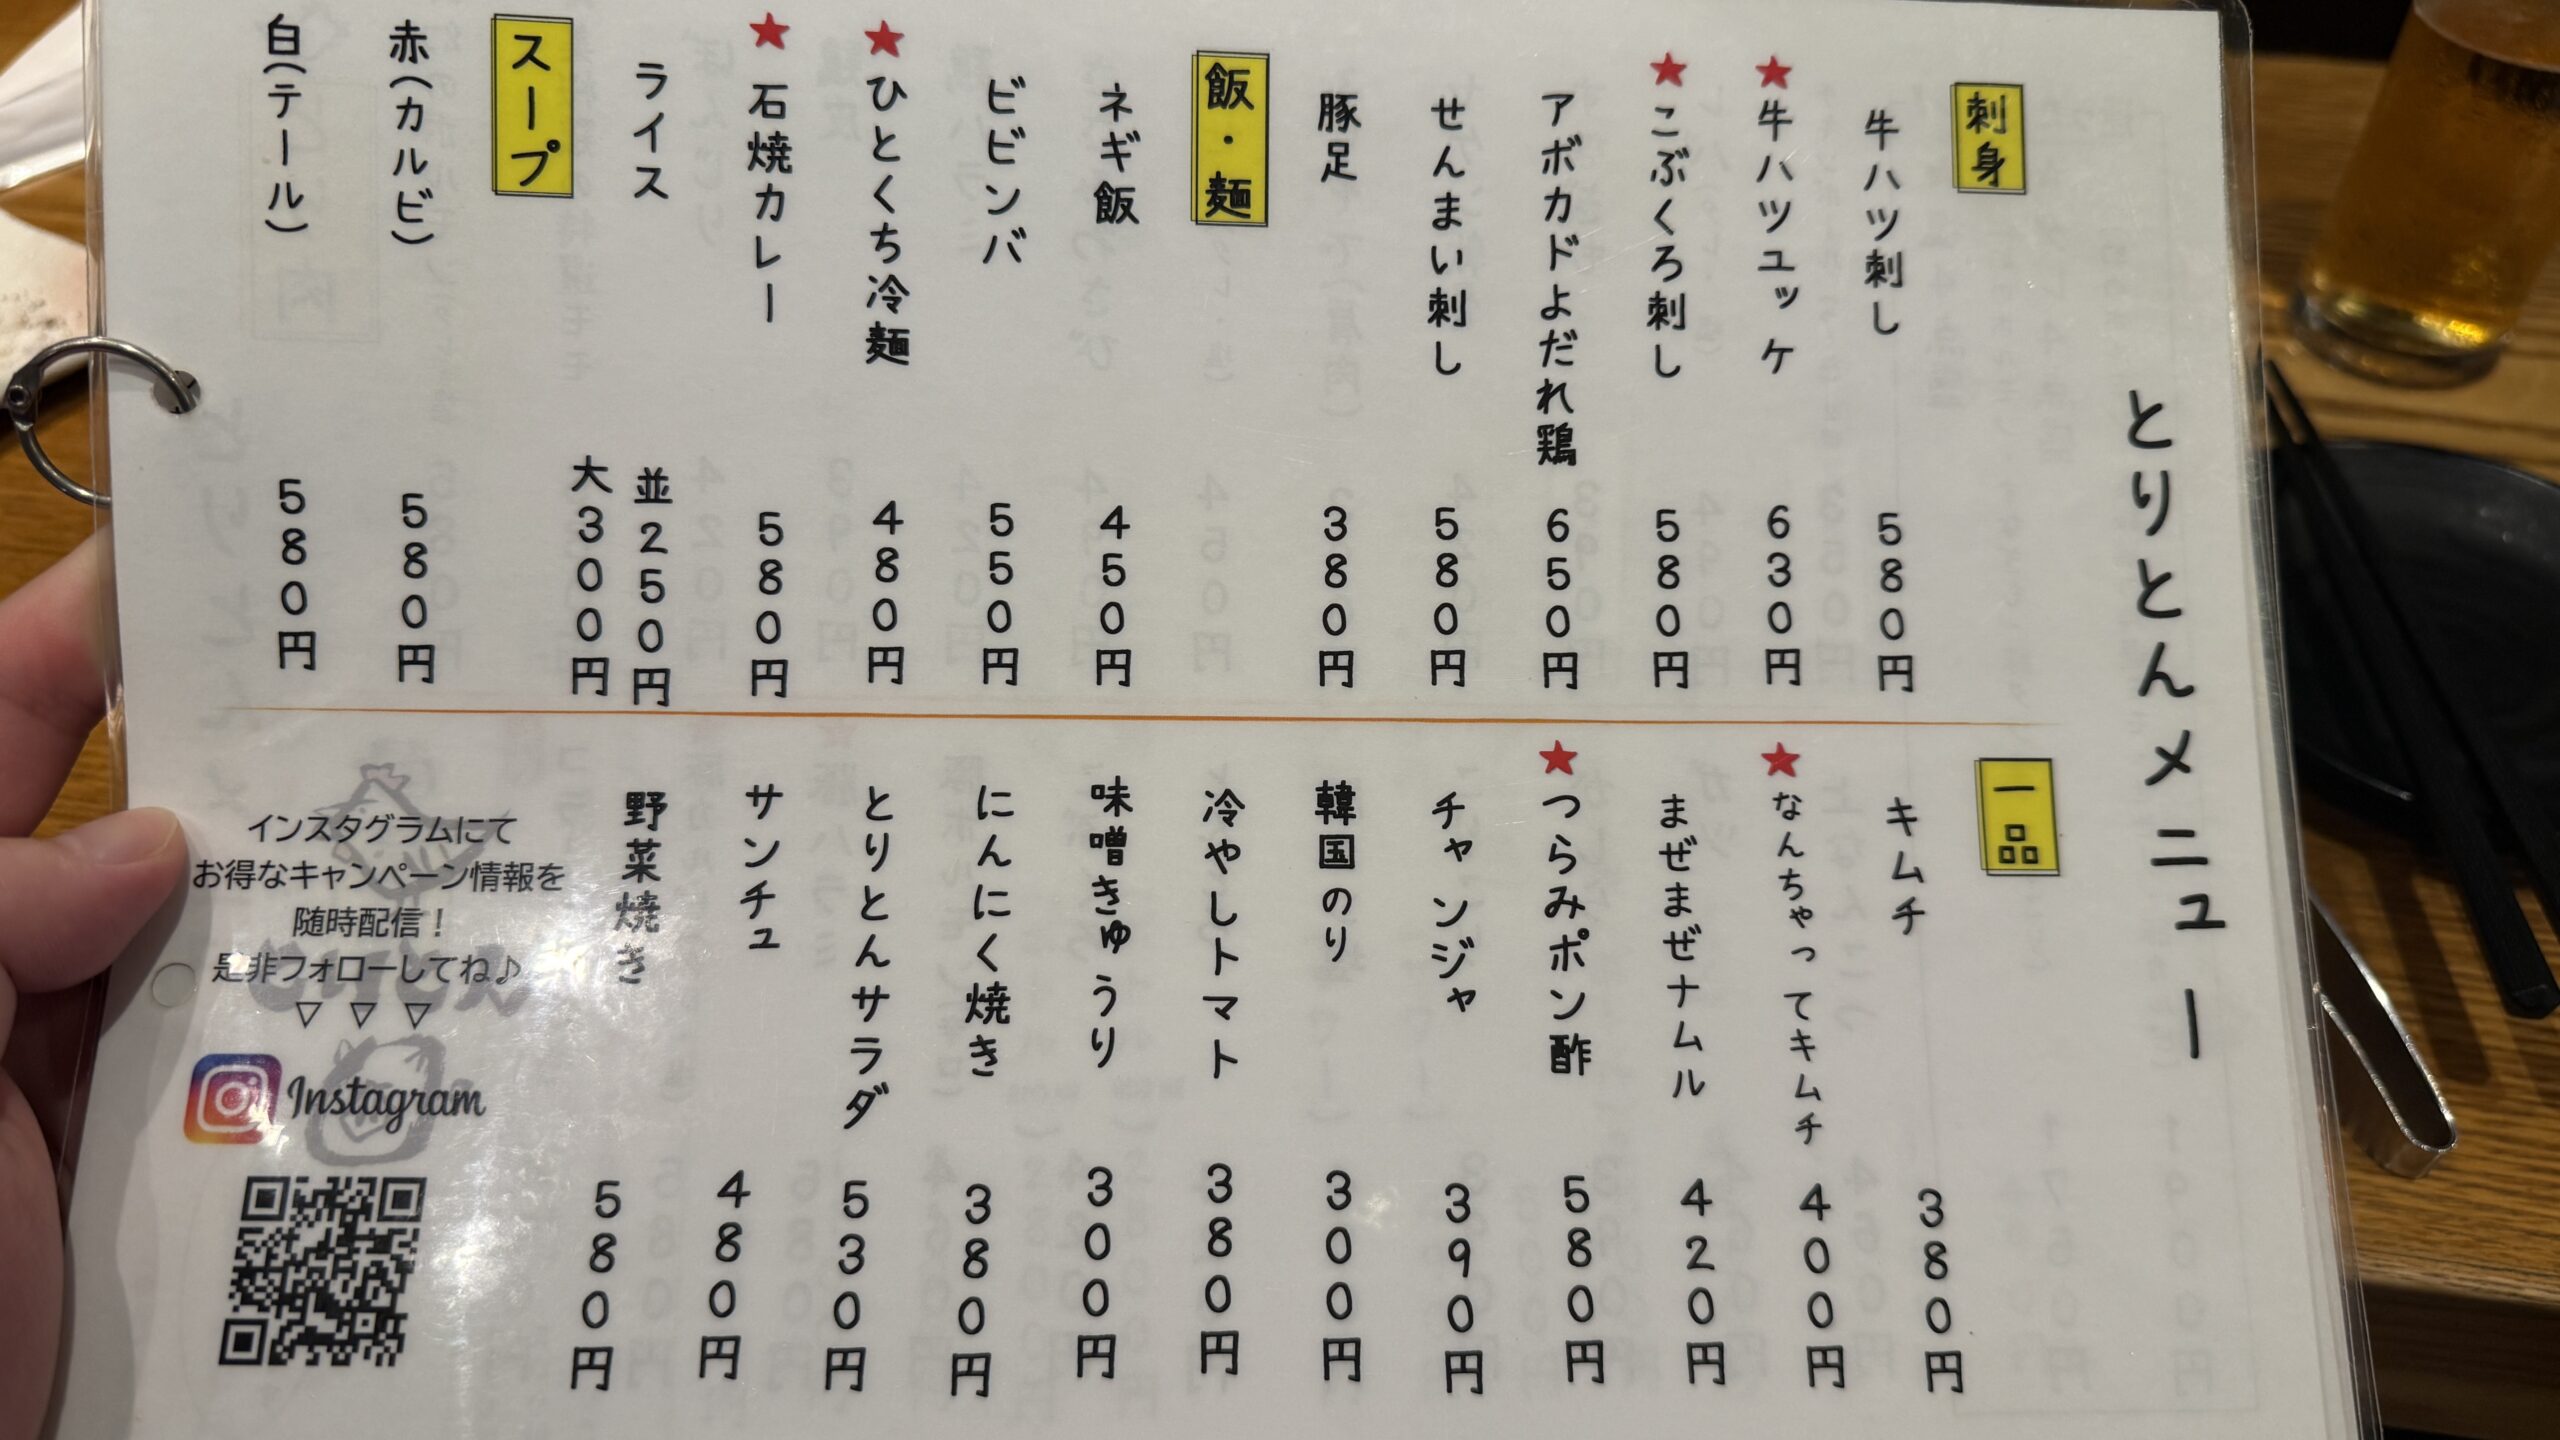 とりとんメニュー
刺身
牛ハツ刺し 580円
★牛ハツユッケ 630円
★こぶくろ刺し 580円
アボカドよだれ鶏 650円
せんまい刺し 580円
豚足 380円
飯・麺
ネギ飯 450円
ビビンバ 550円
★ひとくち冷麺 480円
★石焼カレー 580円
ライス 並250円
大300円
スープ
赤(カルビ) 580円
白(テール) 580円
一品
キムチ 380円
★なんちゃってキムチ 400円
まぜまぜナムル 420円
★つらみポン酢 580円
チャンジャ 390円
韓国のり 300円
冷やしトマト 380円
味噌きゅうり 300円
にんにく焼き 380円
とりとんサラダ 530円
サンチュ 480円
野菜焼き 580円
インスタグラムにて
お得なキャンペーン情報を
随時配信!
是非フォローしてね♪
▽ ▽ ▽
Instagram